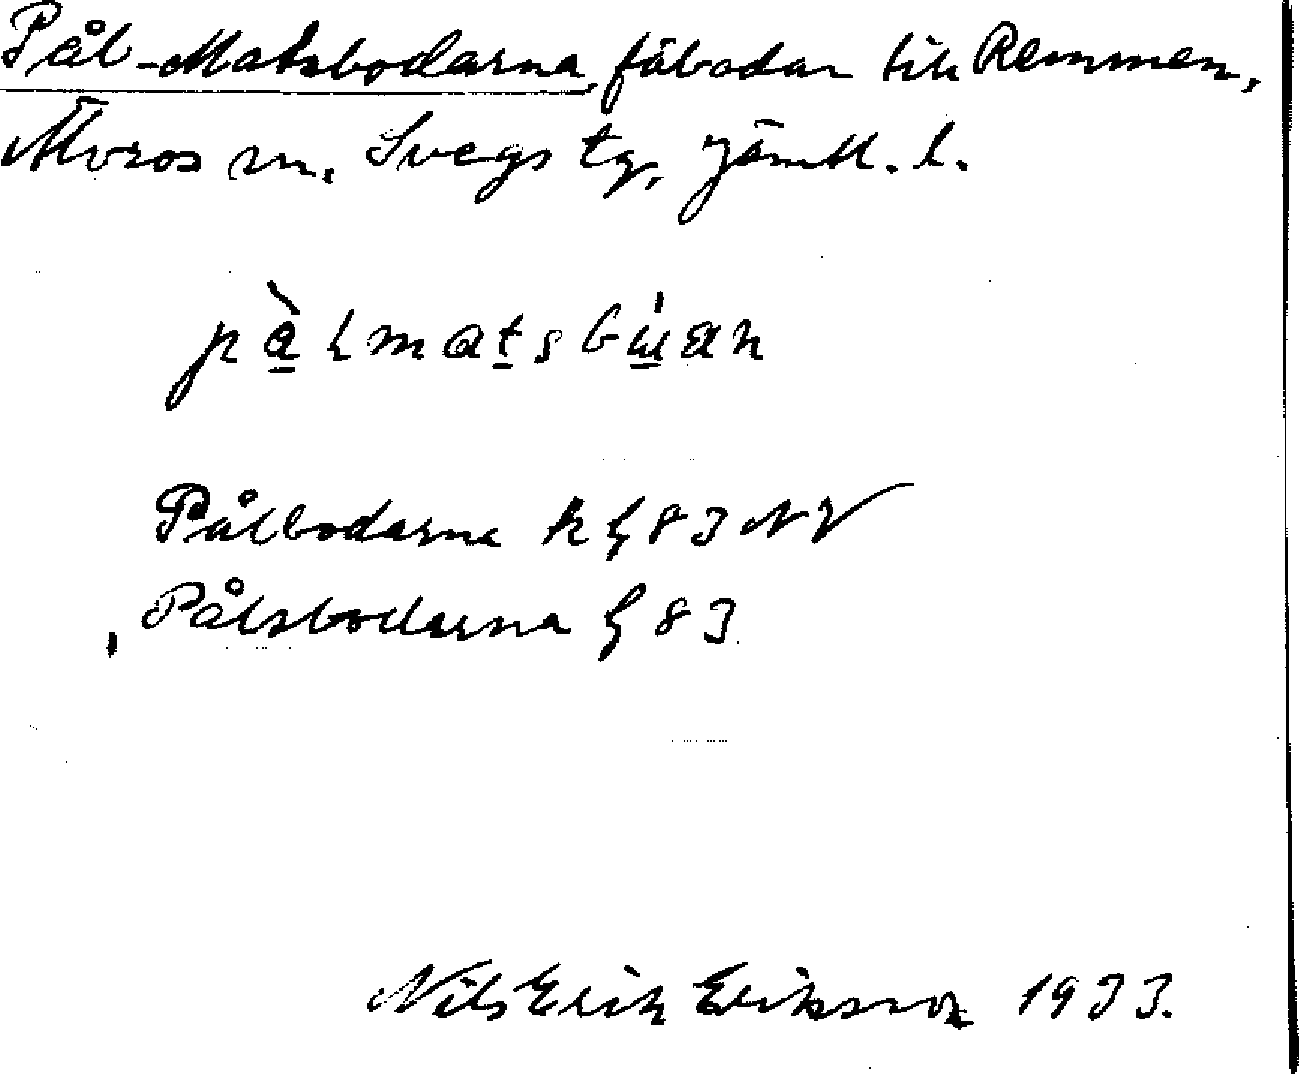 Pål-Matsbodarna, fäbodar till Remmen,
Älvros sn. Svegs tg, Jämtl. l.
Pålbodarna k G 83 NV
Pålsbodarna G 83
Nils Erik Eriksson 1933.